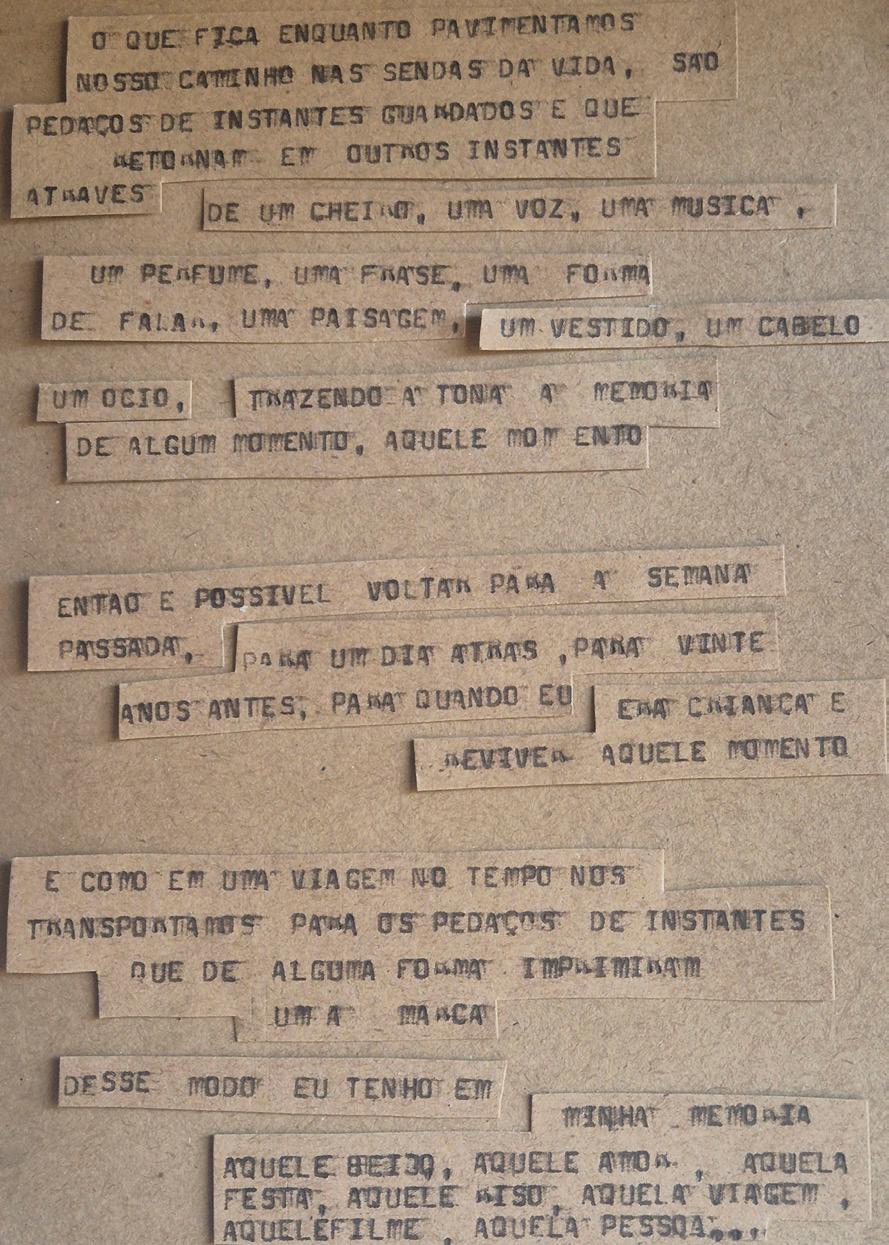 O QUE FICA ENQUANTO PAVIMENTAMOS
NOSSO CAMINHO NAS SENDAS DA VIDA, SAO
PEDAÇOS DE INSTANTES GUARDADOS E QUE
RETORNAM EM OUTROS INSTANTES
ATRAVES DE UM CHEIRO, UMA VOZ, UMA MUSICA,
UM PERFUME, UMA FRASE, UMA FORMA
DE FALAR, UMA PAISAGEM, UM VESTIDO, UM CABELO
UM OCIO, TRAZENDO A TONA A MEMORIA
DE ALGUM MOMENTO, AQUELE MOMENTO
ENTAO E POSSIVEL VOLTAR PARA A SEMANA
PASSADA, PARA UM DIA ATRAS, PARA VINTE
ANOS ANTES, PARA QUANDO EU ERA CRIANÇA E
REVIVER AQUELE MOMENTO
E COMO EM UMA VIAGEM NO TEMPO NOS
TRANSPORTAMOS PARA OS PEDAÇOS DE INSTANTES
QUE DE ALGUMA FORMA IMPRIMIRAM
UMA MARCA
DESSE MODO EU TENHO EM
MINHA MEMORIA
AQUELE BEIJO, AQUELE AMOR, AQUELA
FESTA, AQUELE RISO, AQUELA VIAGEM,
AQUELE FILME, AQUELA PESSOA...